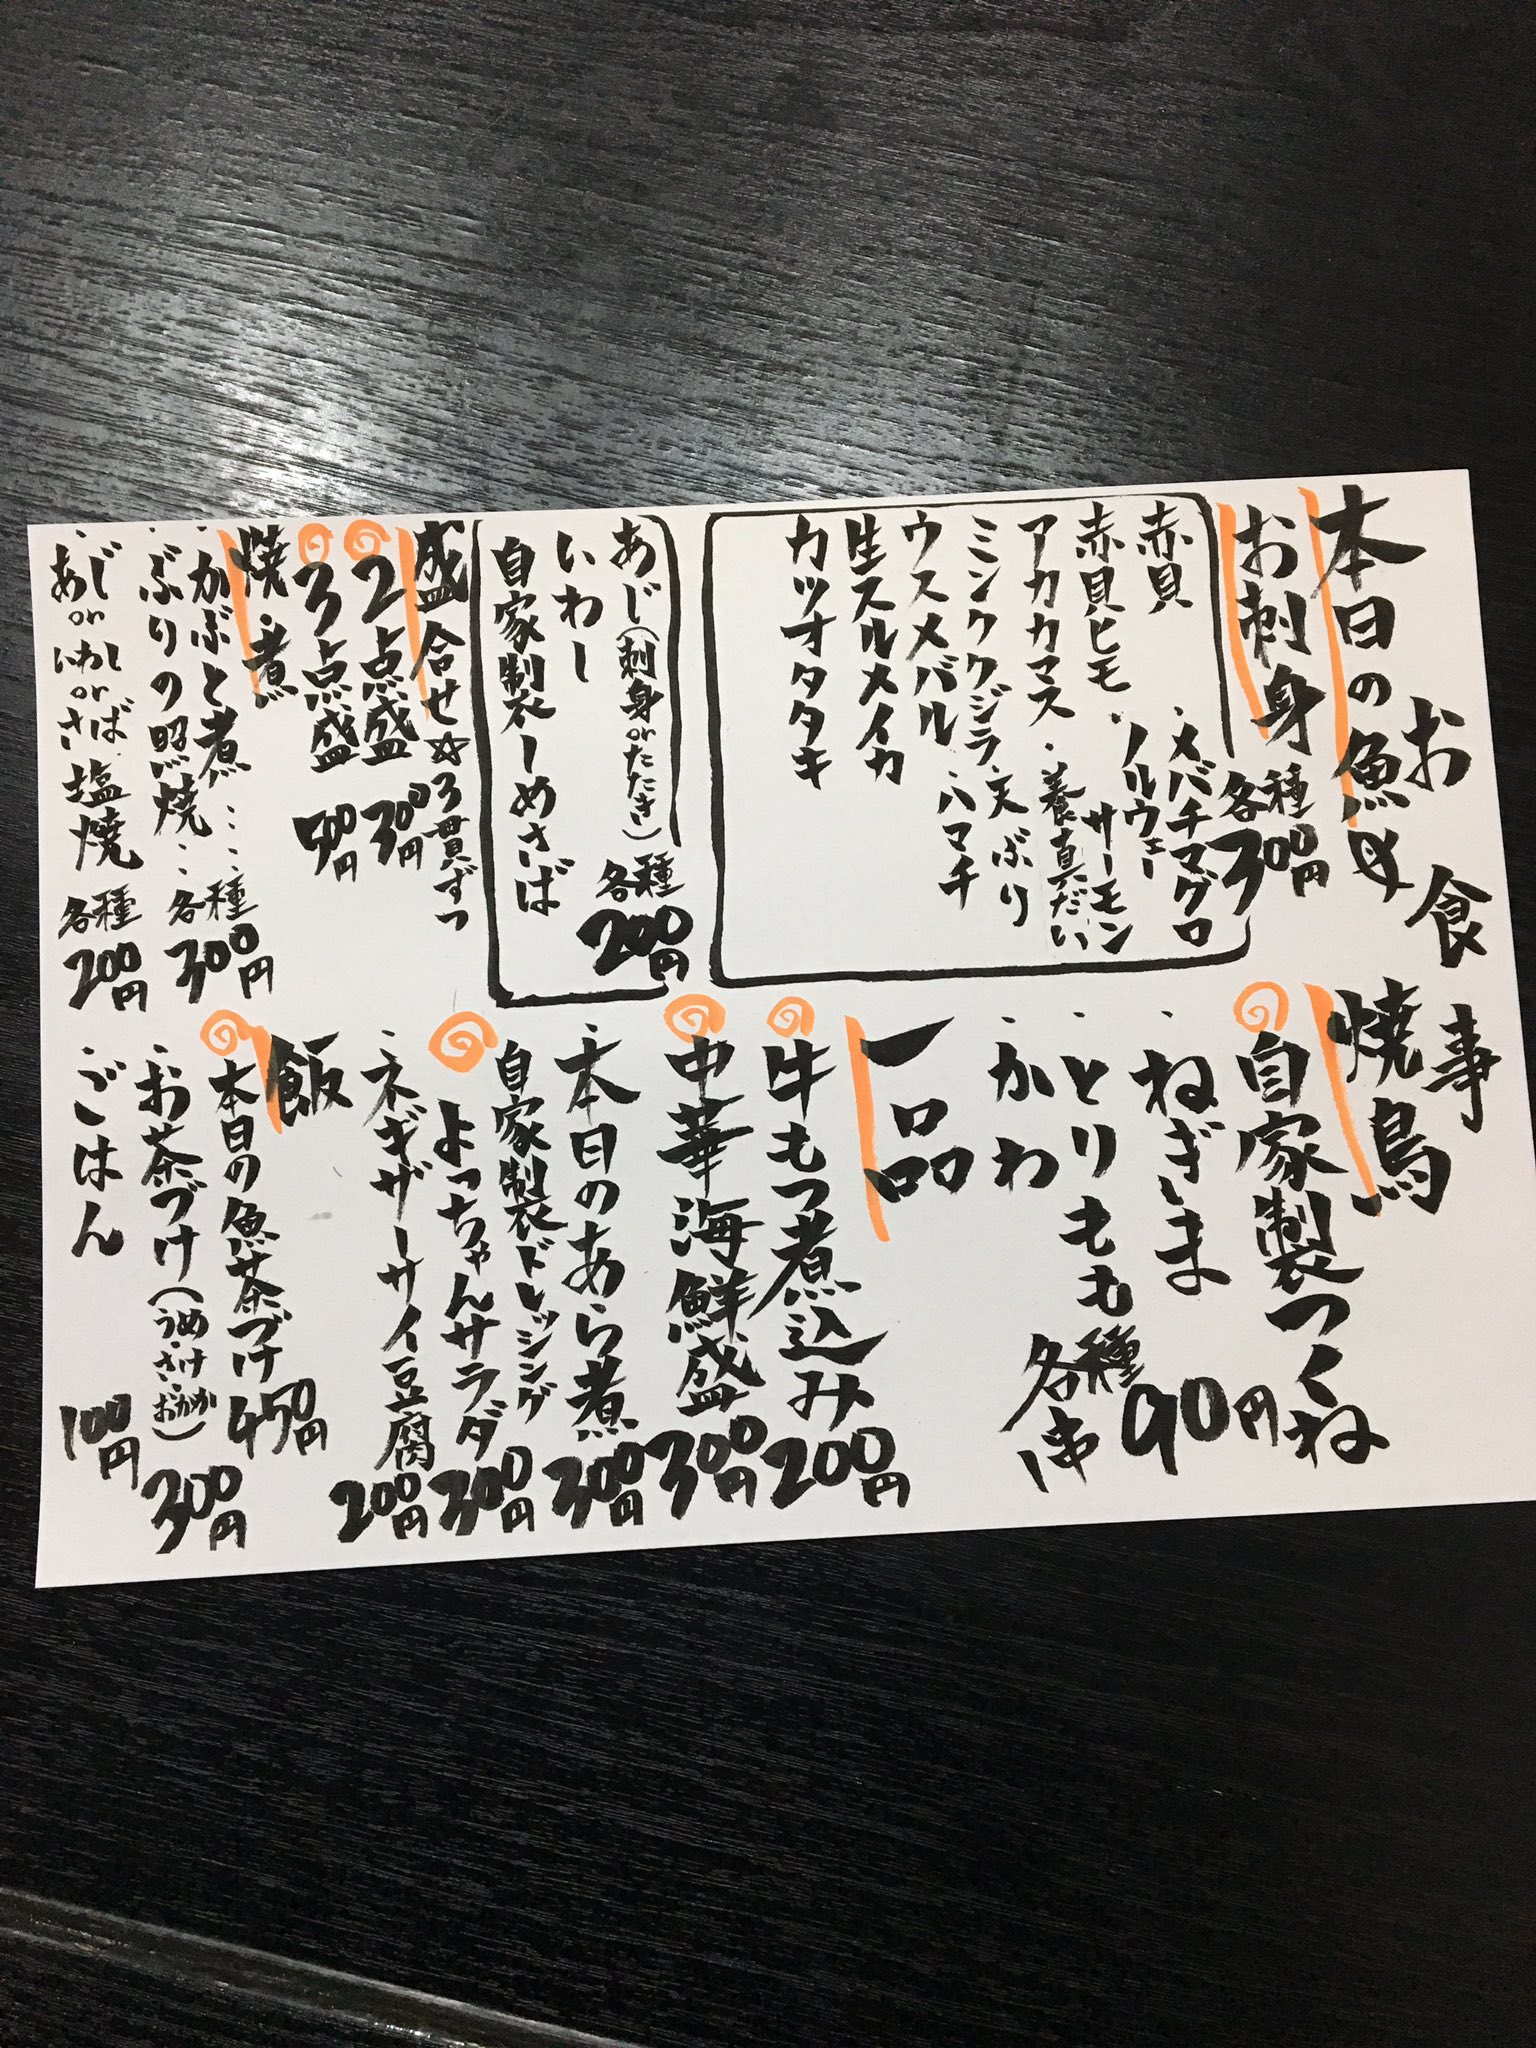 お食事
本日の魚
お刺身 各種300円
赤貝
赤貝ヒモ
アカカマス
ミンククジラ
ウスメバル
生スルメイカ
カツオタタキ
・メバチマグロ
・ノルウェーサーモン
・養真だい
・天ぶり
・ハマチ
あじ(刺身orたたき) 各種200円
いわし
自家製〆めさば
盛合せ☆3貫ずつ
2点盛 300円
3点盛 500円
焼・煮
・かぶと煮……各種300円
・ぶりの照焼…
・あじorいわしorさば 塩焼 各種200円
焼鳥
自家製つくね
・ねぎま 90円
・とりもも 各種
・かわ 1串
一品
牛もつ煮込み 200円
中華海鮮盛 300円
・本日のあら煮 300円
自家製ドレッシング
よっちゃんサラダ 300円
・ネギザーサイ豆腐 200円
飯
本日の魚茶づけ 450円
・お茶づけ(うめ・さけ・おかか) 300円
・ごはん 100円